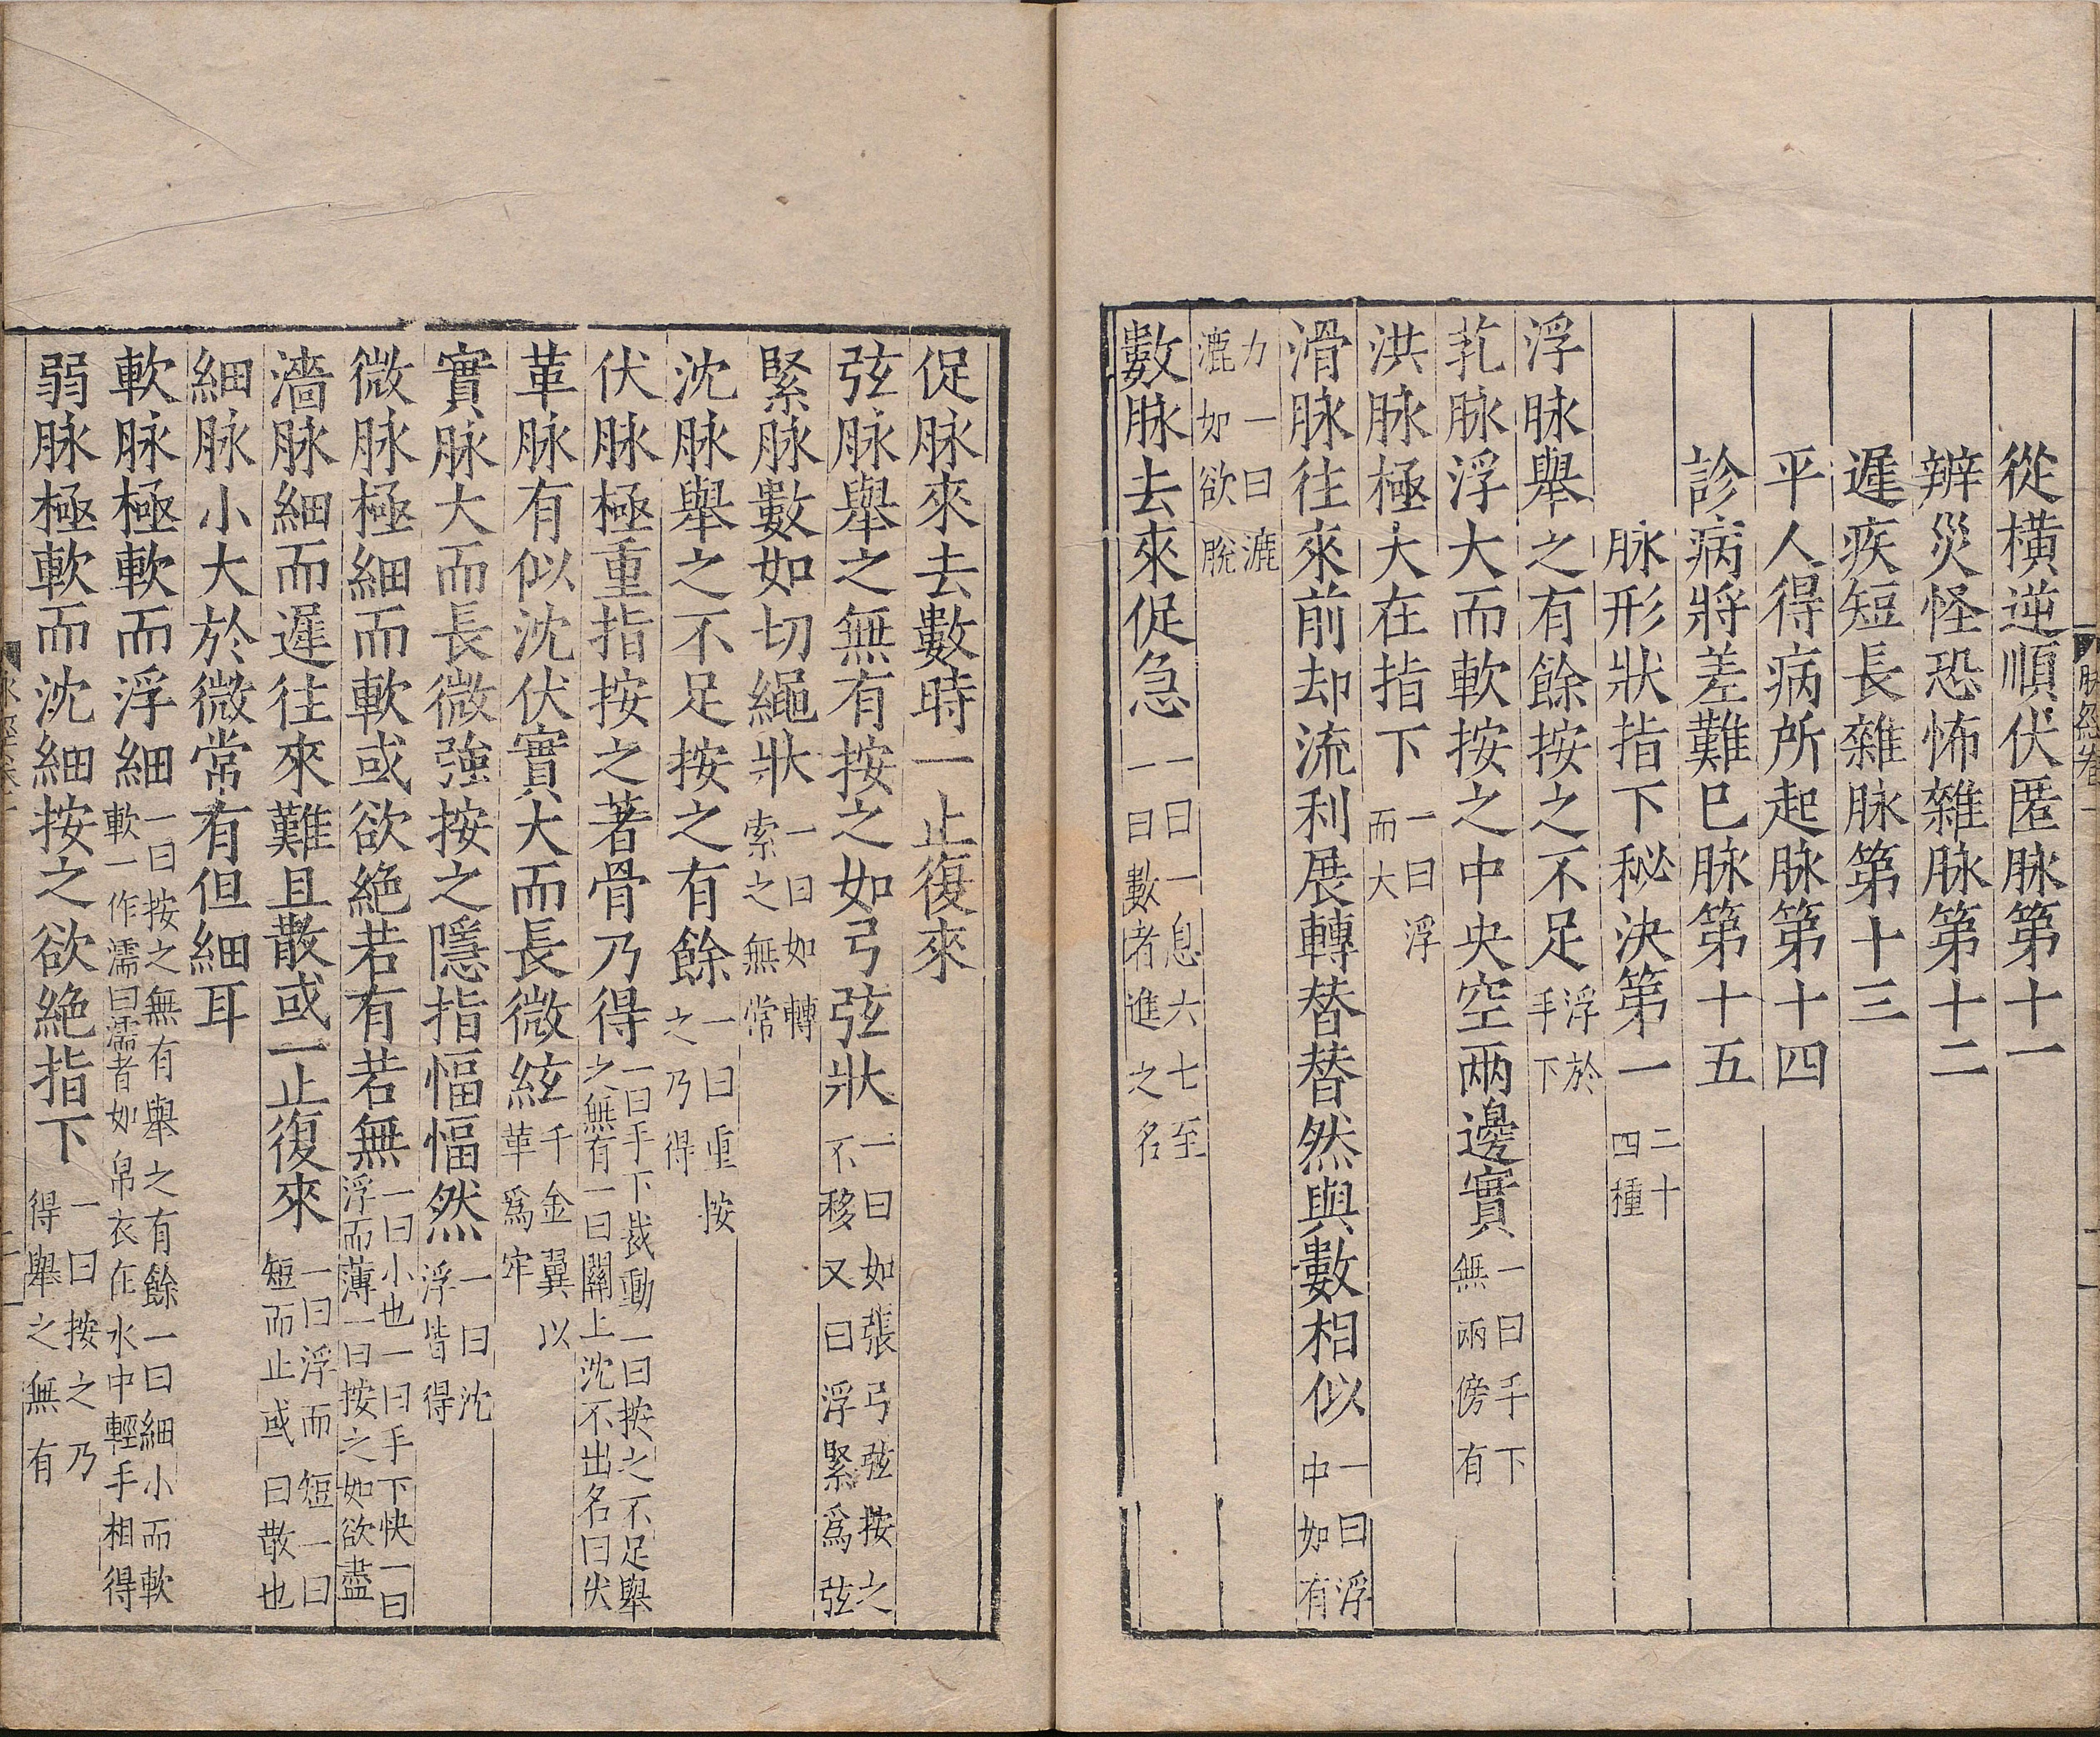 從橫逆順伏匿脉第十一
辨災怪恐怖雜脉第十二
遲疾短長雜脉第十三
平人得病所起脉第十四
診病將差難巳脉第十五
脉形狀指下秘決第一二十四種
浮脉舉之有餘按之不足浮於手下
芤脉浮大而軟按之中央空兩邊實一曰手下無兩傍有
洪脉極大在指下一曰浮而大
滑脉往來前却流利展轉替替然與數相似一曰浮中如有
力一曰漉漉如欲脫
數脉去來促急一曰一息六七至一曰數者進之名
促脉來去數時一止復來
弦脉舉之無有按之如弓弦狀一曰如張弓弦按之不移又曰浮緊爲弦
緊脉數如切繩狀一曰如轉索之無常
沈脉舉之不足按之有餘一曰重按之乃得
伏脉極重指按之著骨乃得一曰手下裁動一曰按之不足舉之無有一曰關上沈不出名曰伏
革脉有似沈伏實大而長微絃千金翼以革爲牢
實脉大而長微強按之隱指愊愊然一曰沈浮皆得
微脉極細而軟或欲絶若有若無一曰小也一曰手下快一曰浮而薄一曰按之如欲盡
濇脉細而遲往來難且散或一止復來一曰浮而短一曰短而止或曰散也
細脉小大於微常有但細耳
軟脉極軟而浮細一曰按之無有舉之有餘一曰細小而軟軟一作濡曰濡者如帛衣在水中輕手相得
弱脉極軟而沈細按之欲絶指下一曰按之乃得舉之無有
脉經卷一